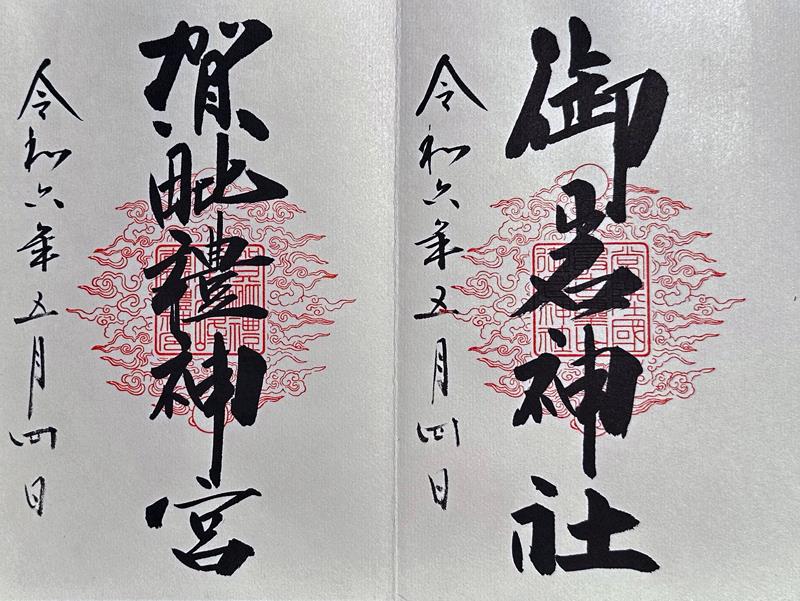 御岩神社
令和六年五月四日
賀毗禮神宮
令和六年五月四日